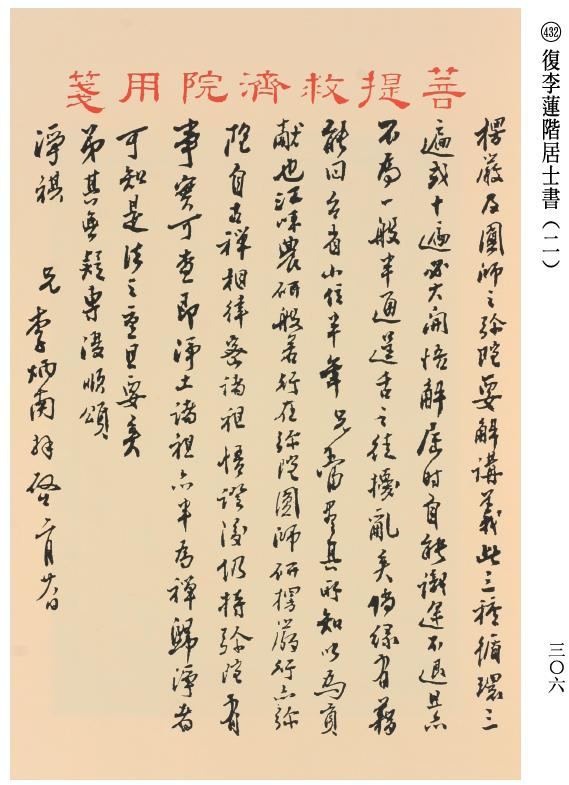 ㊷ 復李蓮階居士書（二）
三〇六
菩提救濟院用箋
楞嚴及圓師之彌陀要解講義此三種循環三
遍或十遍必大開悟解屆時自能謝迷不退且亦
不為一般半通選舌之徒擾亂矣倘緣有藉
能回台省小住半年兄當罄其所知以為貢
獻也江味農研般若行在彌陀圓師研楞嚴行亦彌
陀自古禪相律密諸祖悟證後仍持彌陀有
事實可查即淨土諸祖亦半為禪歸淨者
可知是法之重且要矣
弟其無疑專復順頌
淨祺
兄李炳南拜啓